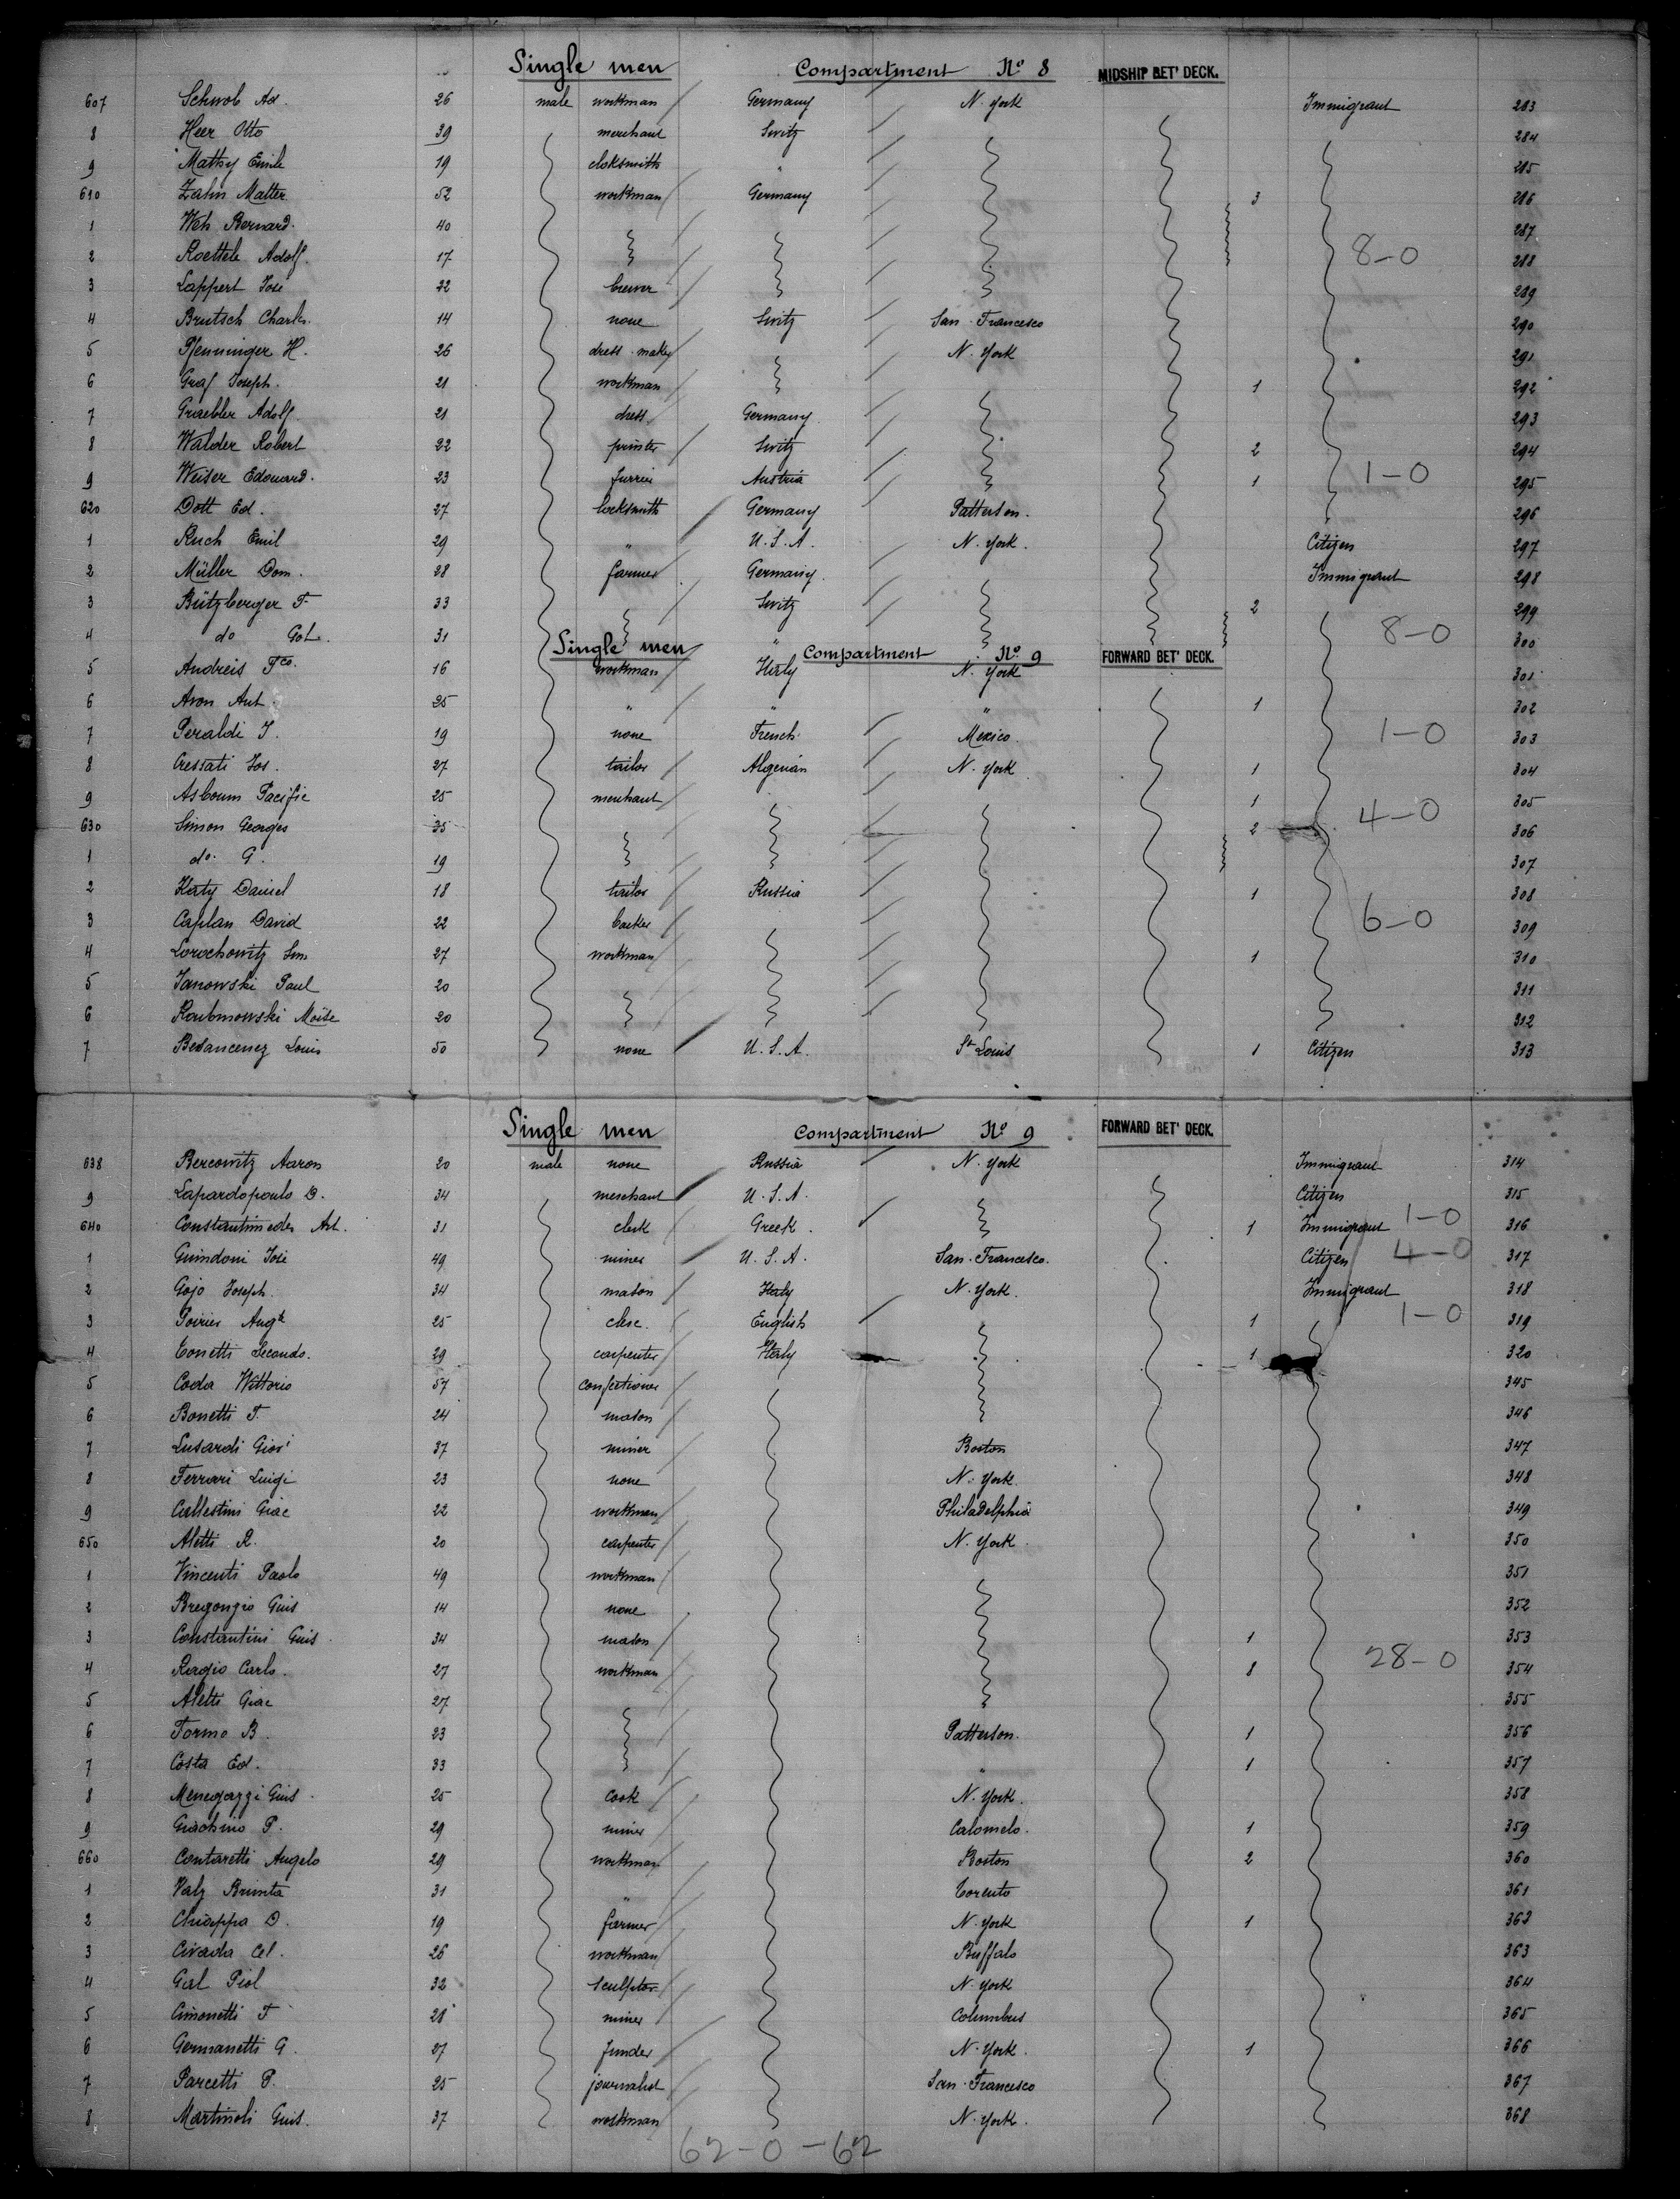 Single men Compartment No 8 MIDSHIP BET' DECK.
607 Schwob Ad. 26 male workman Germany N. York Immigrant 283
8 Heer Otto 39 merchant Switz 284
9 Mathy Emile 19 cloksmith " 285
610 Zahn Matter 52 workman Germany 3 286
1 Weh Bernard. 40 287
2 Roettele Adolf. 17 288
8-0
3 Lappert José 22 brewer 289
4 Brutsch Charles. 14 none Switz San-Francesco 290
5 Pfenninger H. 26 dress-maker N. York 291
6 Graf Joseph. 21 workman 1 292
7 Graebler Adolf. 21 dress. Germany 293
8 Walder Robert 22 printer Switz 2 294
9 Weiser Edouard. 23 furrier Austria 1 1-0 295
620 Dott Ed. 27 locksmith Germany Patterson. 296
1 Ruch Emil 29 " U.S.A. N. York. Citizen 297
2 Müller Dom. 28 farmer Germany. Immigrant 298
3 Bützberger F. 33 Switz 2 299
4 do Got. 31 " 8-0 300
Single men Compartment No 9 FORWARD BET' DECK.
5 Andreis Fco. 16 workman Italy N. York 301
6 Avon Ant. 25 " " " 1 302
7 Peraldi J. 19 none French Mexico. 1-0 303
8 Cressati Jos. 27 tailor Algerian N. York 1 304
9 Asboum Pacific 25 merchant 1 305
4-0
630 Simon Georges 35 2 306
1 do. G. 19 307
2 Katy Daniel 18 tailor Russia 1 308
3 Caplan David 22 baker 6-0 309
4 Lorochowitz Sim 27 workman 1 310
5 Janowski Paul 20 311
6 Roubmowski Moïse 20 312
7 Besancenez Louis 50 none U.S.A. St Louis 1 Citizen 313
Single men Compartment No 9 FORWARD BET' DECK.
638 Bercowitz Aaron 20 male none Russia N. York Immigrant 314
9 Lapardopoulo D. 34 merchant U.S.A. Citizen 315
640 Constantinedes Art. 31 clerk Greek. 1 Immigrant 1-0 316
1 Guindoni José 49 miner U.S.A. San-Francesco. Citizen 4-0 317
2 Gojo Joseph. 34 mason Italy N. York. Immigrant 318
3 Poirier Augte 25 clerc. English 1 1-0 319
4 Conetti Secondo. 29 carpenter Italy 1 320
5 Coda Vittorio 57 confectioner 345
6 Bonetti F. 24 mason 346
7 Lusardi Giovi 37 miner Boston 347
8 Ferrari Luigi 23 none N. York. 348
9 Callestini Giac 22 workman Philadelphia 349
650 Aletti R. 20 carpenter N. York. 350
1 Vincenti Paolo 49 workman 351
2 Bregonzio Guis 14 none 352
3 Constantini Guis. 34 mason 1 353
4 Ragio Carlo. 27 workman 8 28-0 354
5 Aletti Giac 27 355
6 Tormo B. 23 Patterson. 1 356
7 Costa Ed. 33 " 1 357
8 Menegazzi Guis. 25 cook N. York. 358
9 Giachino P. 29 miner Calomelo. 1 359
660 Contaretti Angelo 29 workman Boston 2 360
1 Valz Brimta 31 " Torento 361
2 Chiappa D. 19 farmer N. York 1 362
3 Civada Cel. 26 workman Buffalo 363
4 Gal Piol 32 sculptor N. York 364
5 Cimonetti F 28 miner Columbus 365
6 Germanetti G. 27 funder N. York. 1 366
7 Parcetti P. 25 journalist San-Francesco 367
8 Martinoli Guis. 37 workman N. York. 368
62-0-62